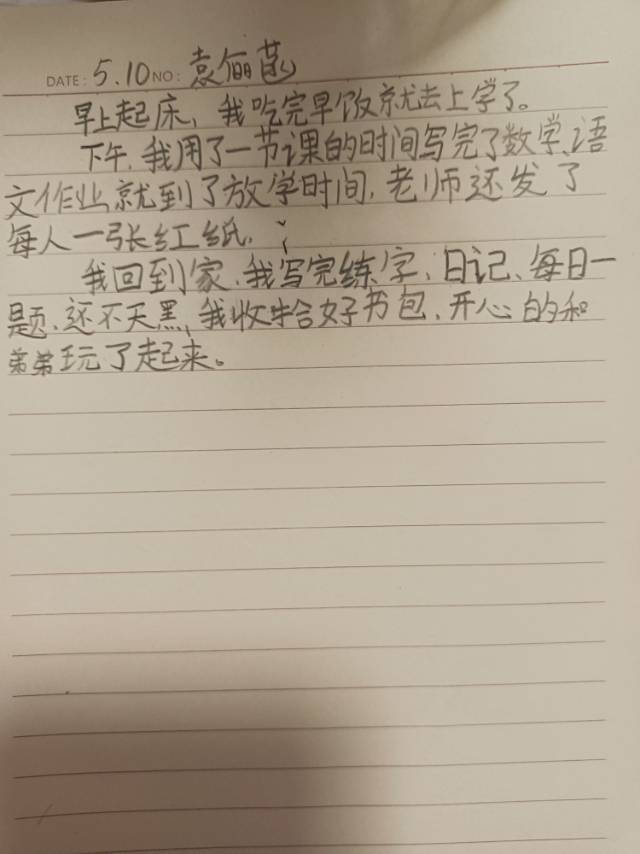 DATE: 5.10 NO: 袁俪菡
早上起床,我吃完早饭就去上学了。
下午,我用了一节课的时间写完了数学、语
文作业,就到了放学时间,老师还发了
每人一张红纸,
我回到家,我写完练字、日记、每日一
题,还不天黑,我收拾好书包,开心的和
弟弟玩了起来。